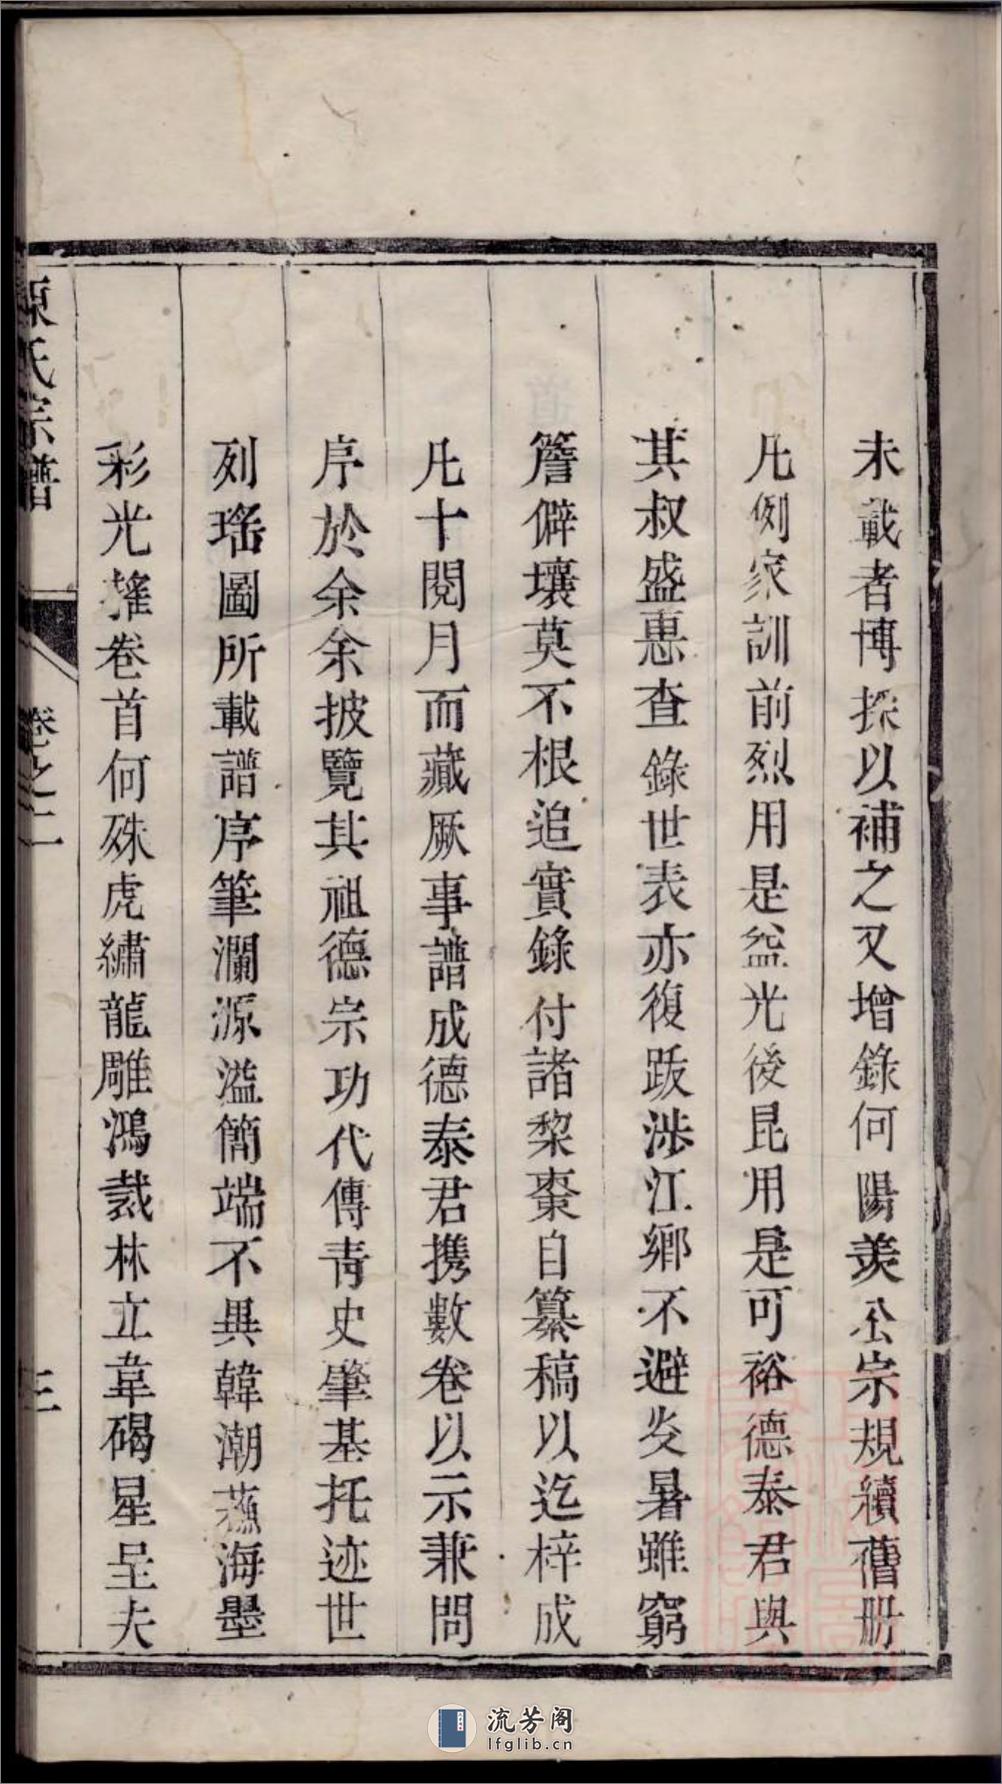 未載者博採以補之又增錄何陽羨公宗規續舊册
凡例家訓前烈用是益光後昆用是可裕德泰君與
其叔盛惠查錄世表亦復跋涉江鄉不避炎暑雖窮
簷僻壤莫不根追實錄付諸棃棗自纂稿以迄梓成
凡十閱月而藏厥事譜成德泰君携數卷以示兼問
序於余余披覽其祖德宗功代傳青史肇基托迹世
列瑤圖所載譜序筆瀾源溢簡端不異韓潮蘓海墨
彩光搖卷首何殊虎繡龍雕鴻裁林立韋碣星呈夫
氏宗譜
卷之二
三
流芳阁
lfglib.cn